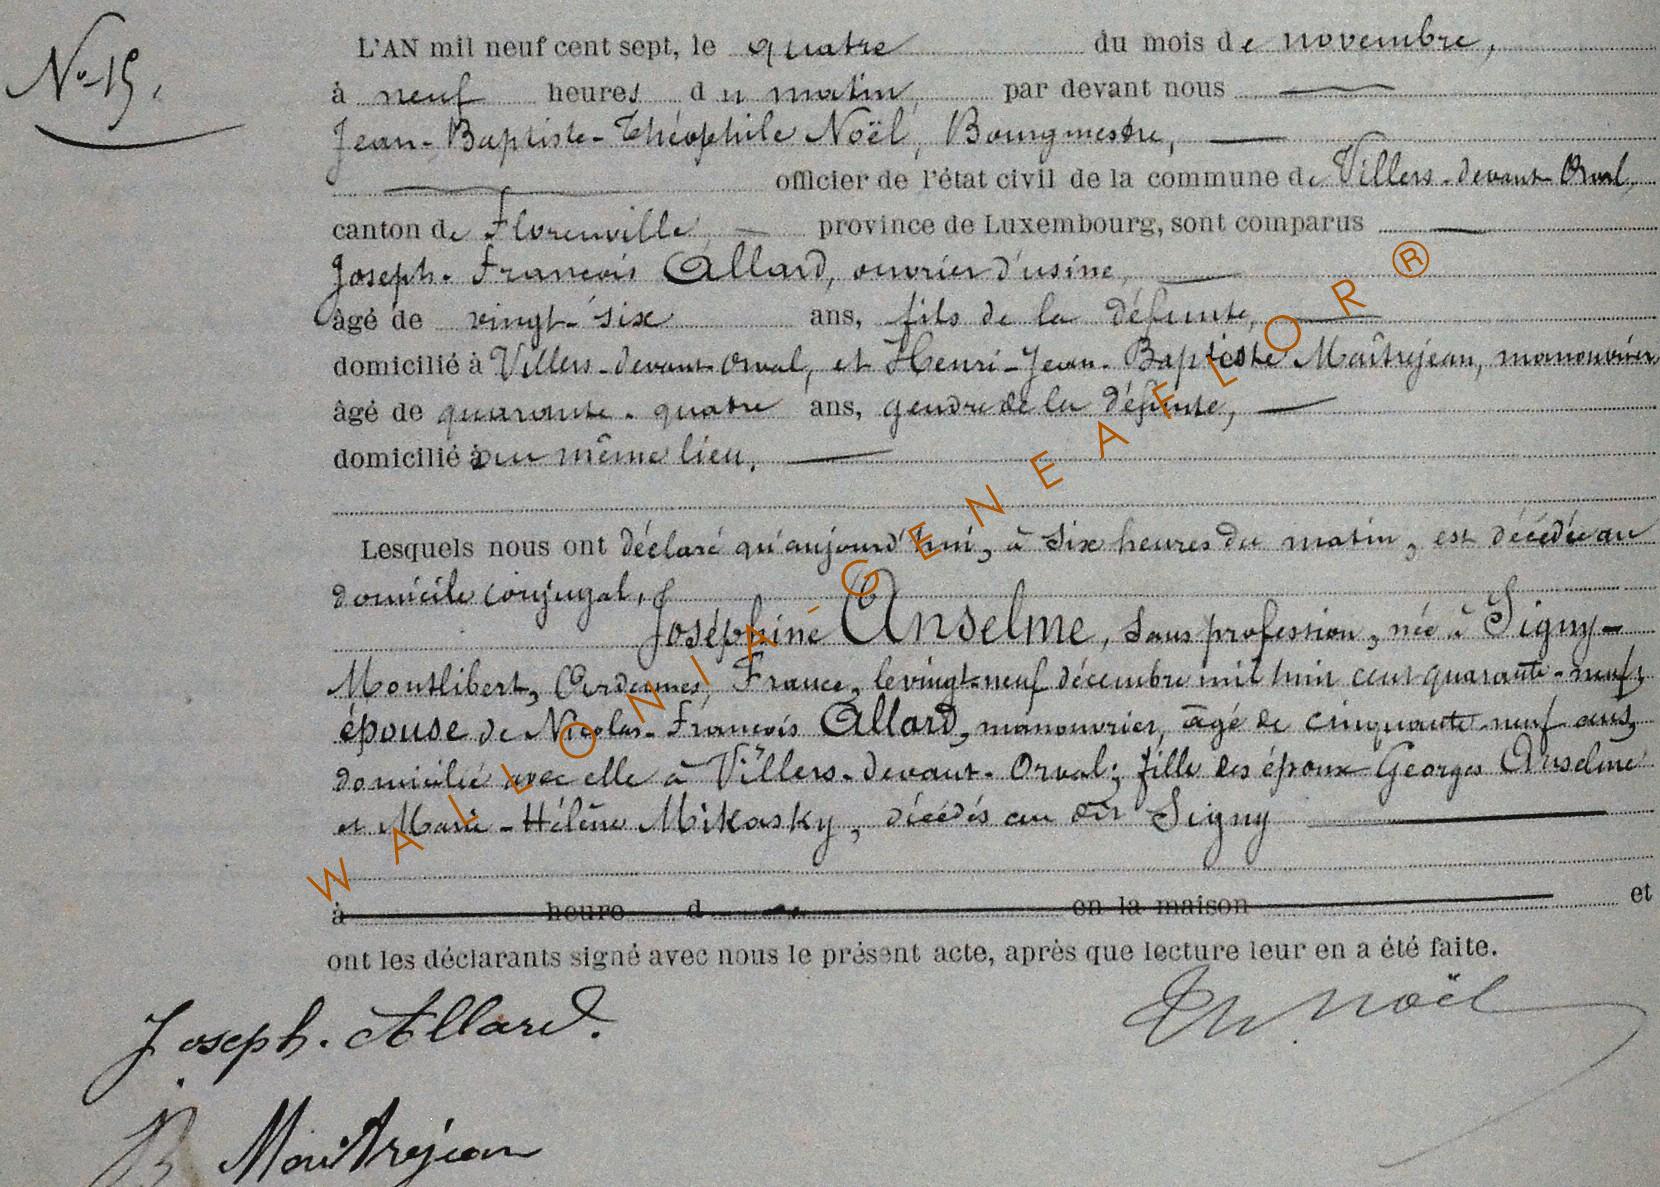 N° 15.
L'AN mil neuf cent sept, le quatre du mois de novembre,
à neuf heures du matin, par devant nous
Jean-Baptiste-Théophile Noël, Bourgmestre,
officier de l'état civil de la commune de Villers-devant-Orval,
canton de Florenville province de Luxembourg, sont comparus
Joseph-François Allard, ouvrier d'usine,
âgé de vingt-six ans, fils de la défunte,
domicilié à Villers-devant-Orval, et Henri-Jean-Baptiste Maîtrejean, manouvrier
âgé de quarante-quatre ans, gendre de la défunte,
domicilié au même lieu,
Lesquels nous ont déclaré qu'aujourd'hui, à six heures du matin, est décédée au
domicile conjugal,
Joséphine Anselme, sans profession, née à Signy-
Montlibert, Ardennes, France, le vingt-neuf décembre mil huit cent quarante-neuf,
épouse de Nicolas-François Allard, manouvrier, âgé de cinquante-neuf ans,
domicilié avec elle à Villers-devant-Orval; fille des époux Georges Anselme
et Marie-Hélène Mikasky, décédés au dit Signy
à heure d en la maison et
ont les déclarants signé avec nous le présent acte, après que lecture leur en a été faite.
Joseph. Allard.
Th. Noël
B Maitrejean
WALLONIA-GENEAFLOR®